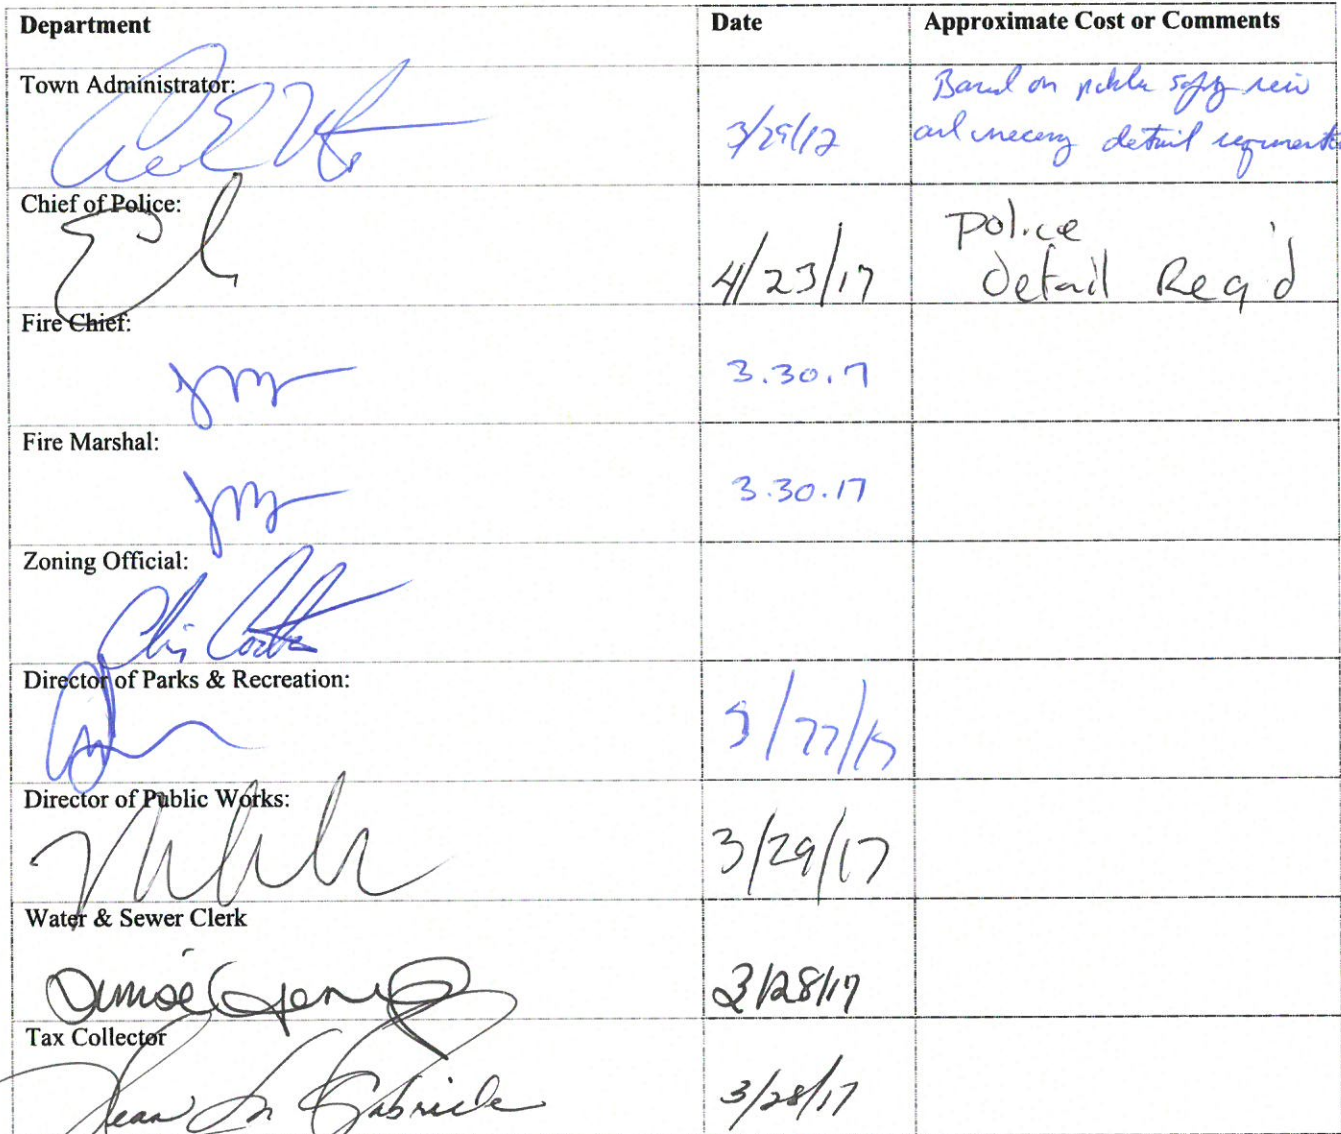 Department Date Approximate Cost or Comments
Town Administrator:
Based on public safety
3/29/17 and detail requirements
Chief of Police:
Police
4/23/17 Detail Req'd
Fire Chief:
3.30.17
Fire Marshal:
3.30.17
Zoning Official:
Director of Parks & Recreation:
Director of Public Works:
3/29/17
Water & Sewer Clerk
3/28/17
Tax Collector
Jean M Gabriele
3/28/17